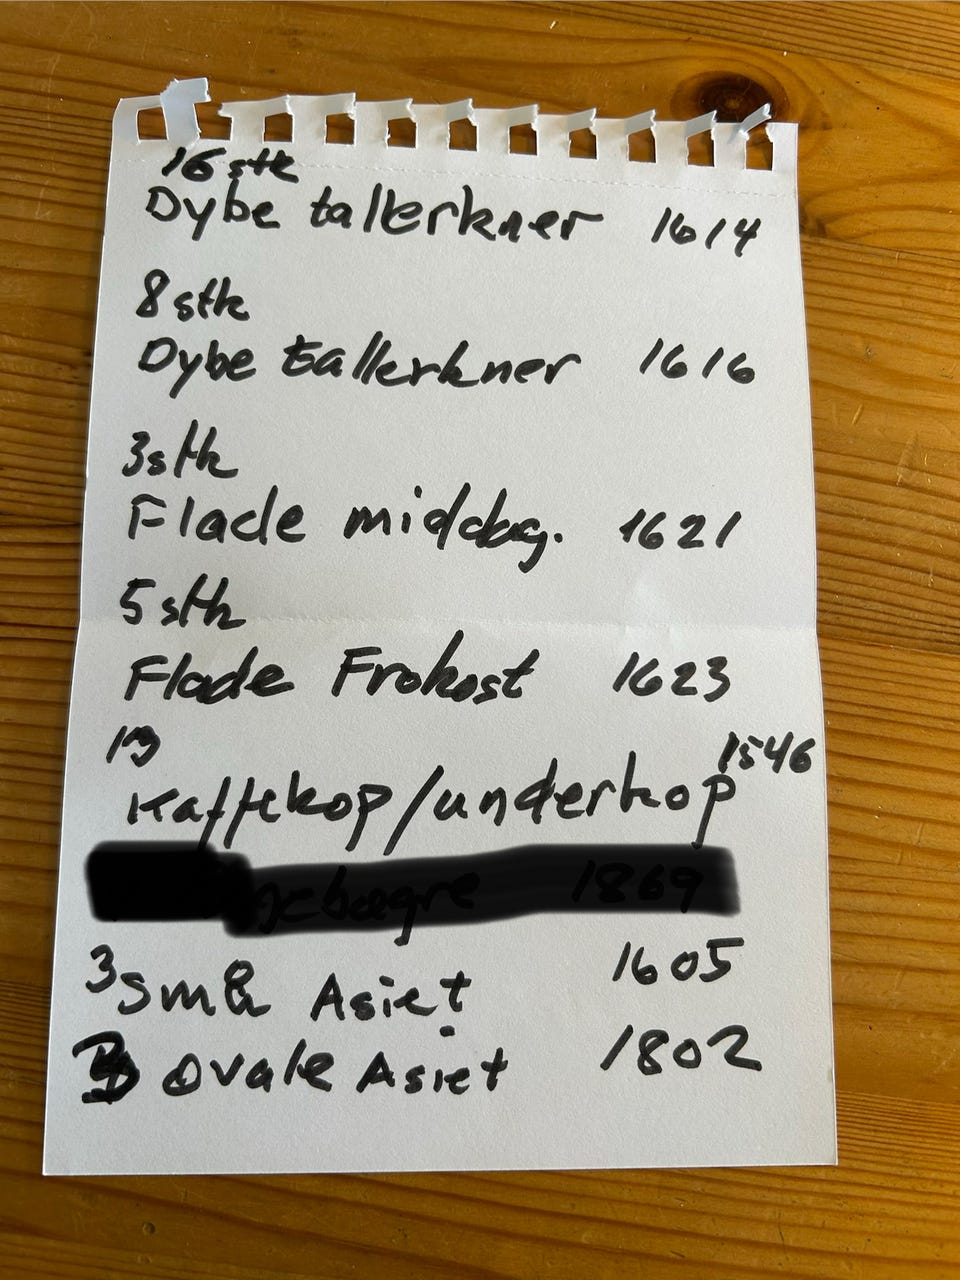 16 stk
Dybe tallerkner 1614
8 stk
Dybe tallerkner 1616
3 stk
Flade middag. 1621
5 stk
Flade Frokost 1623
13
Kaffekop/underkop 1546
1869
3 små Asiet 1605
Ovale Asiet 1802